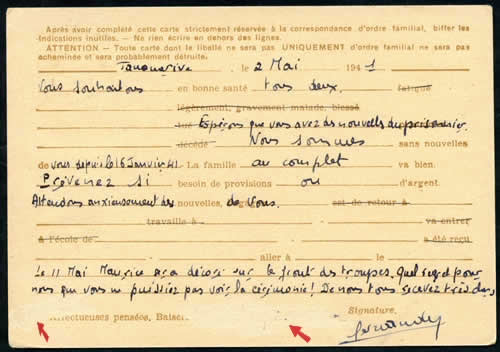 Après avoir complété cette carte strictement réservée à la correspondance d'ordre familial, biffer les
indications inutiles. — Ne rien écrire en dehors des lignes.
ATTENTION — Toute carte dont le libellé ne sera pas UNIQUEMENT d'ordre familial ne sera pas
acheminée et sera probablement détruite.
Tananarive , le 2 Mai 1941
Vous souhaitons en bonne santé tous deux. fatigué
légèrement, gravement malade, blessé
tué Espérons que vous avez des nouvelles du prisonnier.
décédé Nous sommes sans nouvelles
de vous depuis le 16 Janvier 41. La famille au complet va bien.
Prévenez si besoin de provisions ou d'argent.
Attendons anxieusement des nouvelles, de Vous. est de retour à
travaille à va entrer
à l'école de a été reçu
aller à le
Le 11 Mai Maurice sera décoré sur le front des troupes. Quel regret pour
nous que vous ne puissiez pas voir la cérémonie! De nous tous recevez très
Affectueuses pensées, Baisers. Signature.